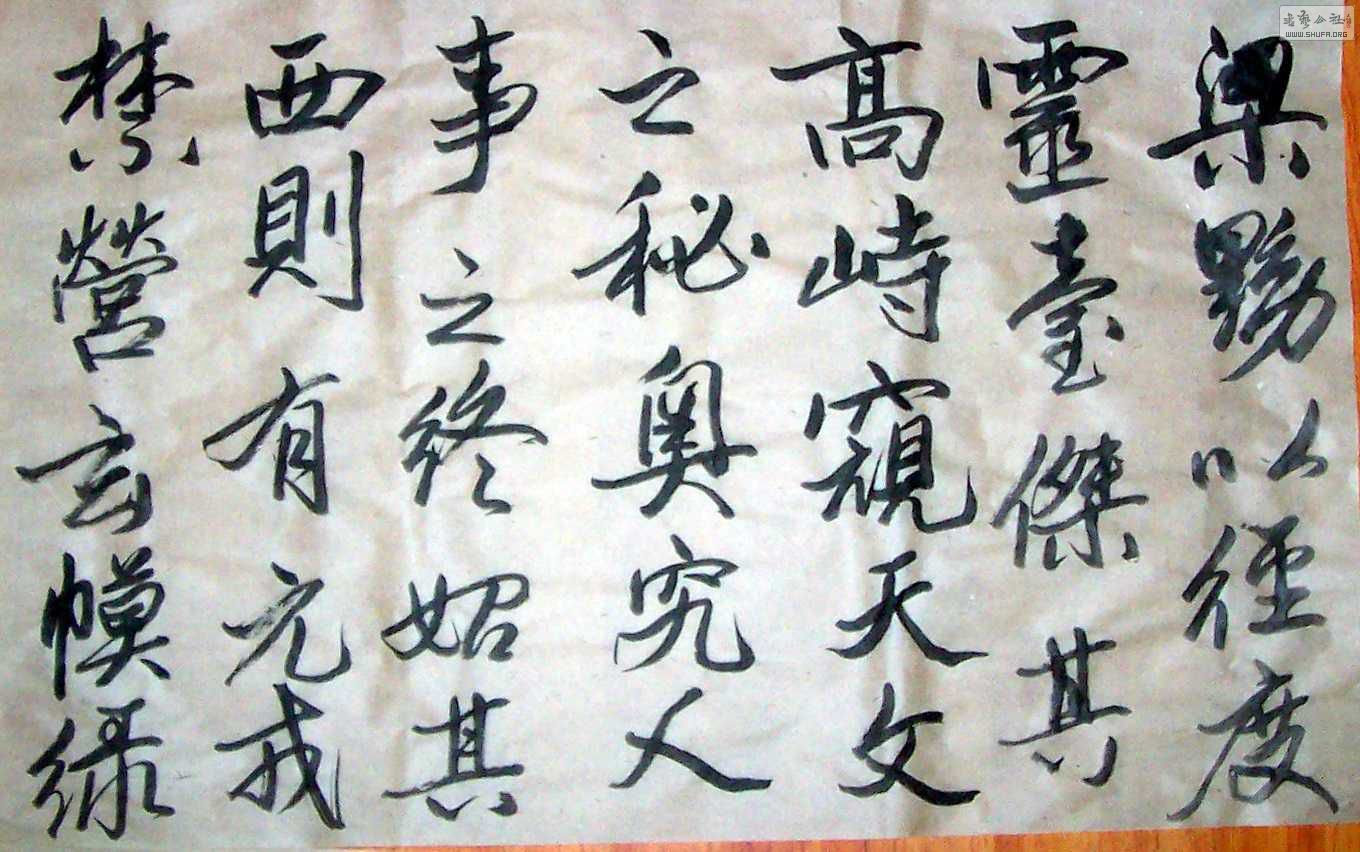 梁黝以徑度
靈臺傑其
高峙窺天文
之秘奥究人
事之終始其
西則有元戎
禁營玄幙緑
書藝公社
WWW.SHUFA.ORG